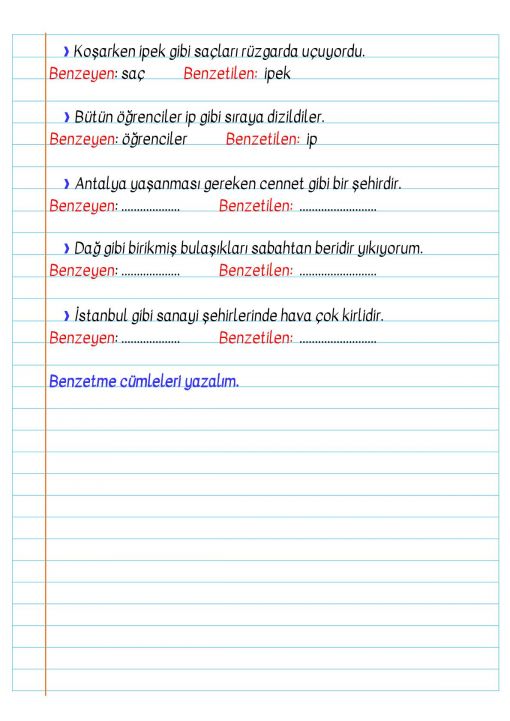 ❩ Koşarken ipek gibi saçları rüzgarda uçuyordu.
Benzeyen: saç Benzetilen: ipek
❩ Bütün öğrenciler ip gibi sıraya dizildiler.
Benzeyen: öğrenciler Benzetilen: ip
❩ Antalya yaşanması gereken cennet gibi bir şehirdir.
Benzeyen: ................... Benzetilen: .........................
❩ Dağ gibi birikmiş bulaşıkları sabahtan beridir yıkıyorum.
Benzeyen: ................... Benzetilen: .........................
❩ İstanbul gibi sanayi şehirlerinde hava çok kirlidir.
Benzeyen: ................... Benzetilen: .........................
Benzetme cümleleri yazalım.